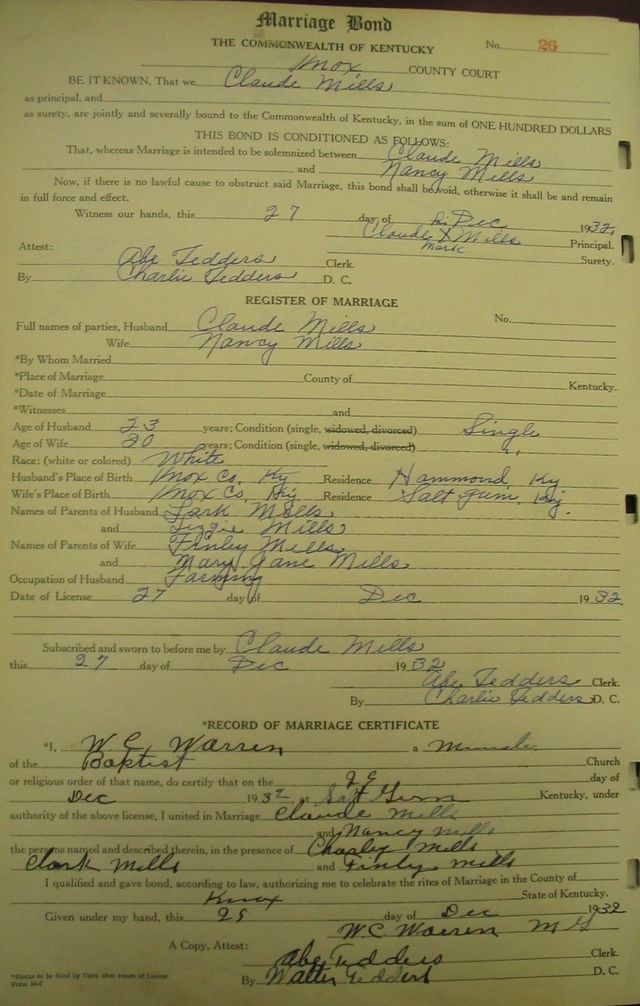 Marriage Bond
THE COMMONWEALTH OF KENTUCKY No. 26
Knox COUNTY COURT
BE IT KNOWN, That we Claude Mills
as principal, and
as surety, are jointly and severally bound to the Commonwealth of Kentucky, in the sum of ONE HUNDRED DOLLARS
THIS BOND IS CONDITIONED AS FOLLOWS:
That, whereas Marriage is intended to be solemnized between Claude Mills
and Nancy Mills
Now, if there is no lawful cause to obstruct said Marriage, this bond shall be void, otherwise it shall be and remain
in full force and effect.
Witness our hands, this 27 day of Dec 1932.
Claude X Mills Principal.
mark
Attest: Surety.
Abe Tedders Clerk.
By Charlie Tedders D. C.
REGISTER OF MARRIAGE
Full names of parties, Husband Claude Mills No.
Wife Nancy Mills
*By Whom Married
*Place of Marriage County of Kentucky.
*Date of Marriage
*Witnesses and
Age of Husband 23 years; Condition (single, widowed, divorced) Single
Age of Wife 20 years; Condition (single, widowed, divorced) "
Race: (white or colored) White
Husband's Place of Birth Knox Co. Ky Residence Hammond Ky
Wife's Place of Birth Knox Co, Ky Residence Salt Gum, Ky.
Names of Parents of Husband Lark Mills
and Lizzie Mills
Names of Parents of Wife Finley Mills
and Mary Jane Mills
Occupation of Husband Farming
Date of License 27 day of Dec 1932.
Subscribed and sworn to before me by Claude Mills
this 27 day of Dec 1932
Abe Tedders Clerk.
By Charlie Tedders D. C.
*RECORD OF MARRIAGE CERTIFICATE
*I, W C Warren a
of the Baptist Church
or religious order of that name, do certify that on the 29 day of
Dec 1932 Salt Gum Kentucky, under
authority of the above license, I united in Marriage Claude Mills
and Nancy Mills
the persons named and described therein, in the presence of Charley Mills
Clark Mills and Finly Mills
I qualified and gave bond, according to law, authorizing me to celebrate the rites of Marriage in the County of
Knox State of Kentucky.
Given under my hand, this 29 day of Dec 1932
W C Warren M G
A Copy, Attest: Abe Tedders Clerk.
By Walter Tedders D. C.
*Blanks to be filled by Clerk after return of License